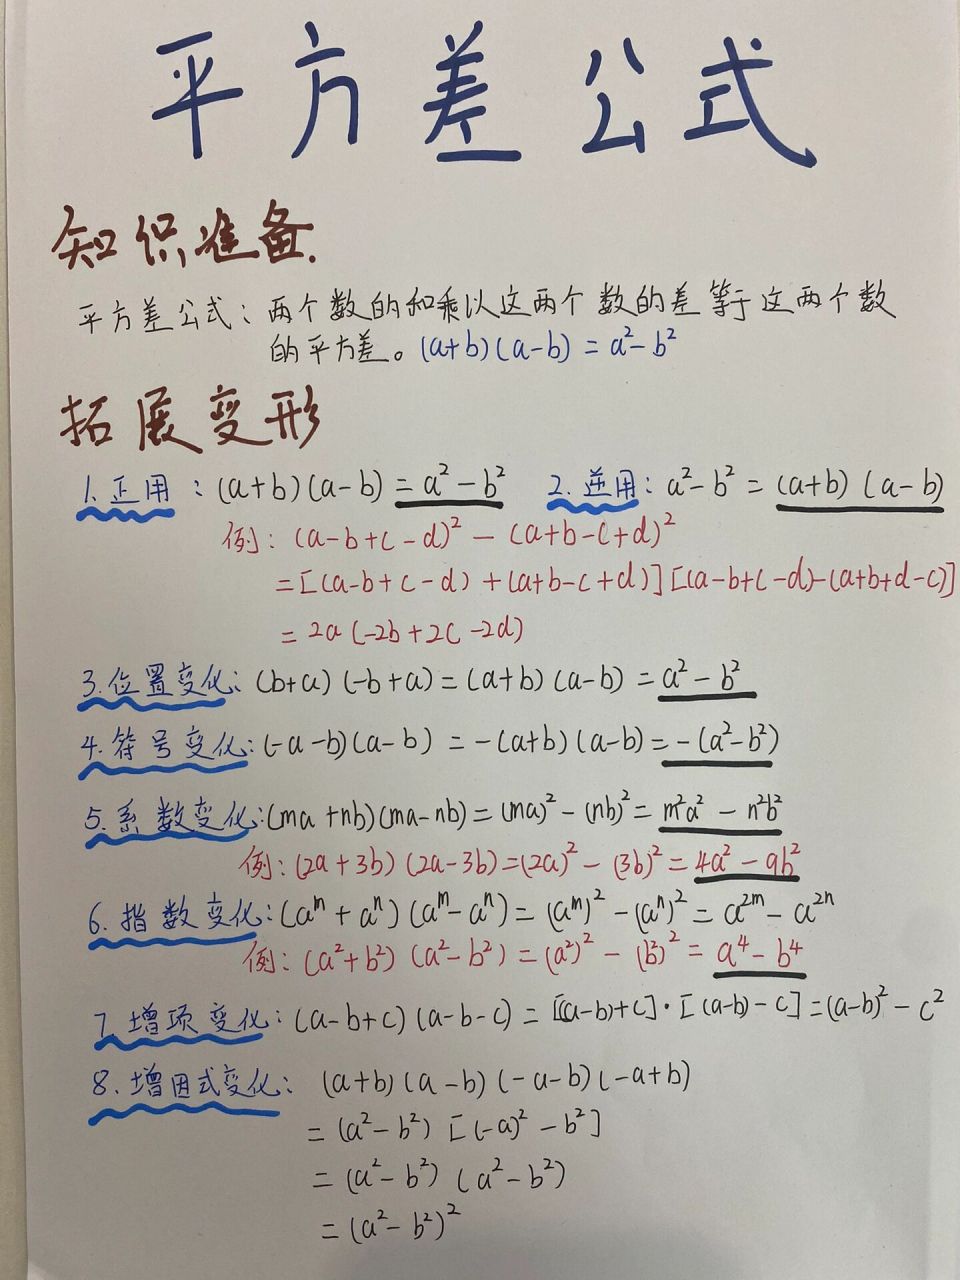 平方差公式
知识准备.
平方差公式：两个数的和乘以这两个数的差等于这两个数
的平方差。(a+b)(a-b) = a²-b²
拓展变形
1.正用：(a+b)(a-b) = a²-b² 2.逆用：a²-b² = (a+b)(a-b)
例：(a-b+c-d)² - (a+b-c+d)²
=[(a-b+c-d)+(a+b-c+d)][(a-b+c-d)-(a+b+d-c)]
= 2a(-2b+2c-2d)
3.位置变化：(b+a)(-b+a) = (a+b)(a-b) = a²-b²
4.符号变化：(-a-b)(a-b) = -(a+b)(a-b) = -(a²-b²)
5.系数变化：(ma+nb)(ma-nb) = (ma)²-(nb)² = m²a²-n²b²
例：(2a+3b)(2a-3b)=(2a)²-(3b)² = 4a²-9b²
6.指数变化：(aᵐ+aⁿ)(aᵐ-aⁿ) = (aᵐ)²-(aⁿ)² = a²ᵐ-a²ⁿ
例：(a²+b²)(a²-b²) = (a²)²-(b²)² = a⁴-b⁴
7.增项变化：(a-b+c)(a-b-c) = [(a-b)+c]·[(a-b)-c] = (a-b)²-c²
8.增因式变化：(a+b)(a-b)(-a-b)(-a+b)
= (a²-b²)[(-a)²-b²]
= (a²-b²)(a²-b²)
= (a²-b²)²